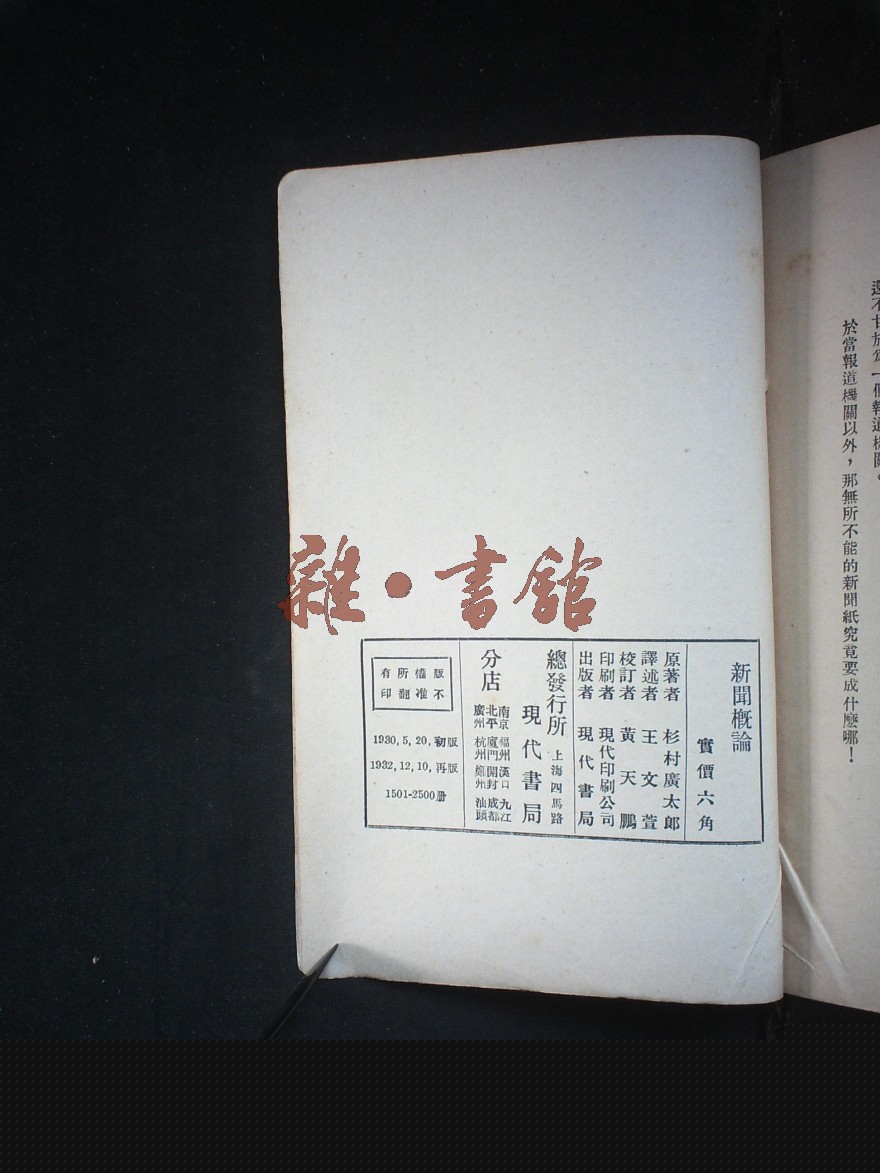 還不甘於為一個報道機關。
於當報道機關以外，那無所不能的新聞紙究竟要成什麼哪！
雜·書館
新聞概論
實價六角
原著者 杉村廣太郎
譯述者 王文萱
校訂者 黃天鵬
印刷者 現代印刷公司
出版者 現代書局
總發行所 上海四馬路
現代書局
分店
南京 福州 漢口 九江
北平 廈門 開封 成都
廣州 杭州 鄭州 汕頭
版權所有
不准翻印
1930, 5, 20, 初版
1932, 12, 10, 再版
1501-2500册